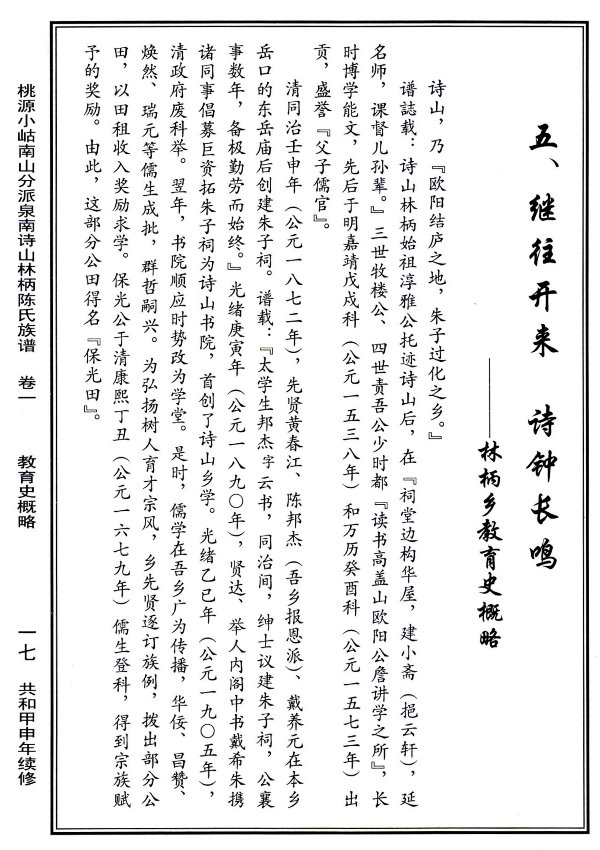 五、继往开来 诗钟长鸣
——林柄乡教育史概略
诗山，乃『欧阳结庐之地，朱子过化之乡。』
谱誌载：诗山林柄始祖淳雅公托迹诗山后，在『祠堂边构华屋，建小斋（挹云轩），延
名师，课督儿孙辈。』三世牧楼公、四世责吾公少时都『读书高盖山欧阳公詹讲学之所』，长
时博学能文，先后于明嘉靖戊戌科（公元一五三八年）和万历癸酉科（公元一五七三年）出
贡，盛誉『父子儒官』。
清同治壬申年（公元一八七二年），先贤黄春江、陈邦杰（吾乡报恩派）、戴养元在本乡
岳口的东岳庙后创建朱子祠。谱载：『太学生邦杰字云书，同治间，绅士议建朱子祠，公襄
事数年，备极勤劳而始终。』光绪庚寅年（公元一八九〇年），贤达、举人内阁中书戴希朱携
诸同事倡募巨资拓朱子祠为诗山书院，首创了诗山乡学。光绪乙巳年（公元一九〇五年），
清政府废科举。翌年，书院顺应时势改为学堂。是时，儒学在吾乡广为传播，华佞、昌赞、
焕然、瑞元等儒生成批，群哲嗣兴。为弘扬树人育才宗风，乡先贤逐订族例，拨出部分公
田，以田租收入奖励求学。保光公于清康熙丁丑（公元一六七九年）儒生登科，得到宗族赋
予的奖励。由此，这部分公田得名『保光田』。
桃源小岵南山分派泉南诗山林柄陈氏族谱 卷一 教育史概略 一七 共和甲申年续修